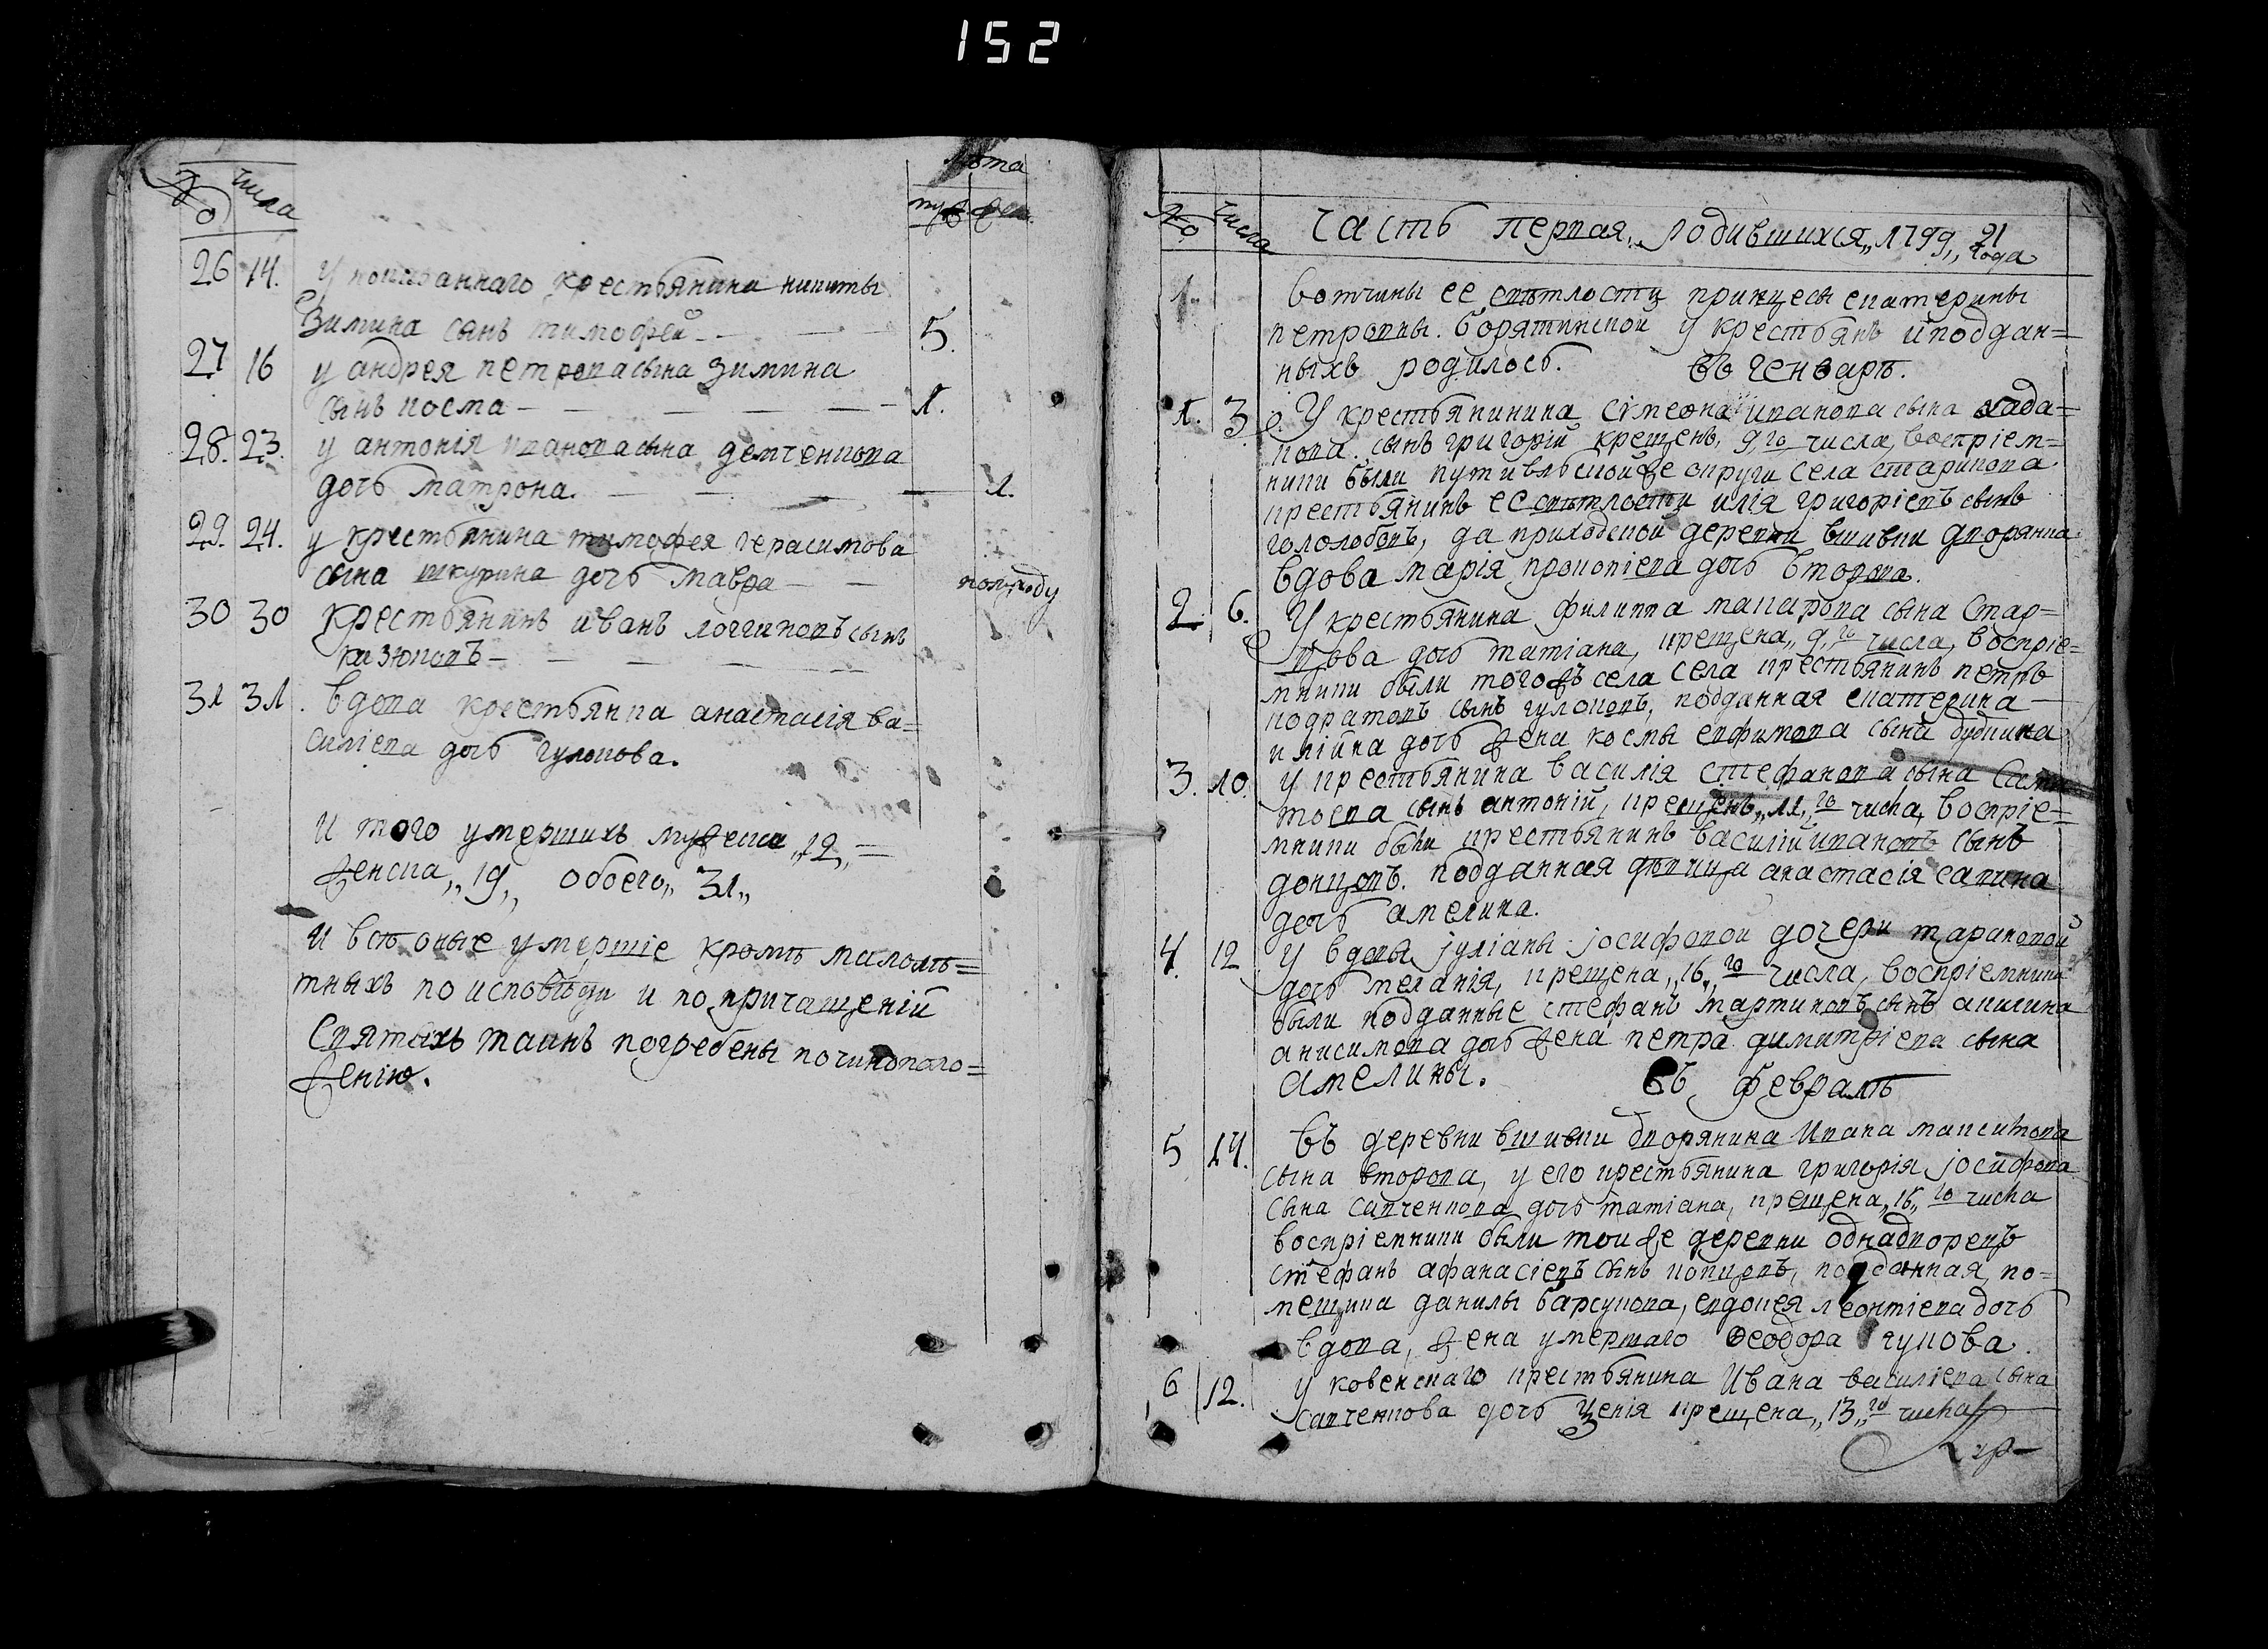 152
№ числа
лѣта
муж жен.
26 14. У крестьянина никиты
Зимина сынъ тимофей 5.
27 16 у андрея петрова сына зимина
сынъ косма 1.
28. 23. у антонія иванова сына демченкова
дочь матрона. 1.
29. 24. у крестьянина тимофея герасимова
сына шкурина дочь мавра полугоду
30 30 крестьянинъ иванъ логгиновъ сынъ
31 31. вдова крестьянка анастасія ва=
силіева дочь гулокова.
И того умершихъ мужеска „12„=
женска „19„ обоего „31„
И всѣ оные умершіе кромѣ малолѣ=
тныхъ по исповѣди и по причащеній
Святыхъ таинъ погребены по чиноположе=
женію.
№ числа Часть первая, родившихся „1799„ года
21
1. Вотчины ее свѣтлости принцесы екатерины
петровны борятинской у крестьянъ и поддан=
ныхъ родилось. Въ генварѣ.
1. 3. У крестьянинина сімеона иванова сына хада=
кова сынъ григорій крещенъ, 9, го числа, воспріем=
ники были путивльской же округи села старикова
крестьянинъ ее свѣтлости илія григоріевъ сынъ
гололобовъ, да приходской деревни вшивки дворянка
вдова марія прокопіева дочь второва.
2. 6. У крестьянина филиппа макарова сына Стар=
кова дочь татіана, крещена „9„ го числа, воспріе=
мники были тогожъ села села крестьянинъ петръ
кодратовъ сынъ гулоковъ, подданная екатерина
илійна дочь жена космы евфимова сына дудкина
3. 10. у крестьянина василія стефанова сына
сынъ антоній, крещенъ „11„ го числа, воспріе=
мники были крестьянинъ василій ивановъ сынъ
донцовъ. подданная дѣвица анастасія савина
дочь амелина.
4. 12 У вдовы јуліаны јосифовой дочери тарановой
дочь мелания, крещена, „16„ го числа, воспріемники
были подданные стефанъ мартиновъ сынъ
анисимова дочь жена петра димитріева сына
амелины. Въ февралѣ
5 14. Въ деревни вшивки дворянина Ивана максимова
сына второва, у его крестьянина григорія јосифова
сына савченкова дочь татіана, крещена „16„ го числа
воспріемники были той же деревни однадворецъ
стефанъ афанасіевъ сынъ копцовъ, подданная по=
мещика данилы барсукова, евдокея леонтіева дочь
вдова, жена умершаго Ѳеодора гукова.
6 12. У ковенскаго крестьянина Ивана василіева сына
савченкова дочь ксенія крещена „13„ го числа